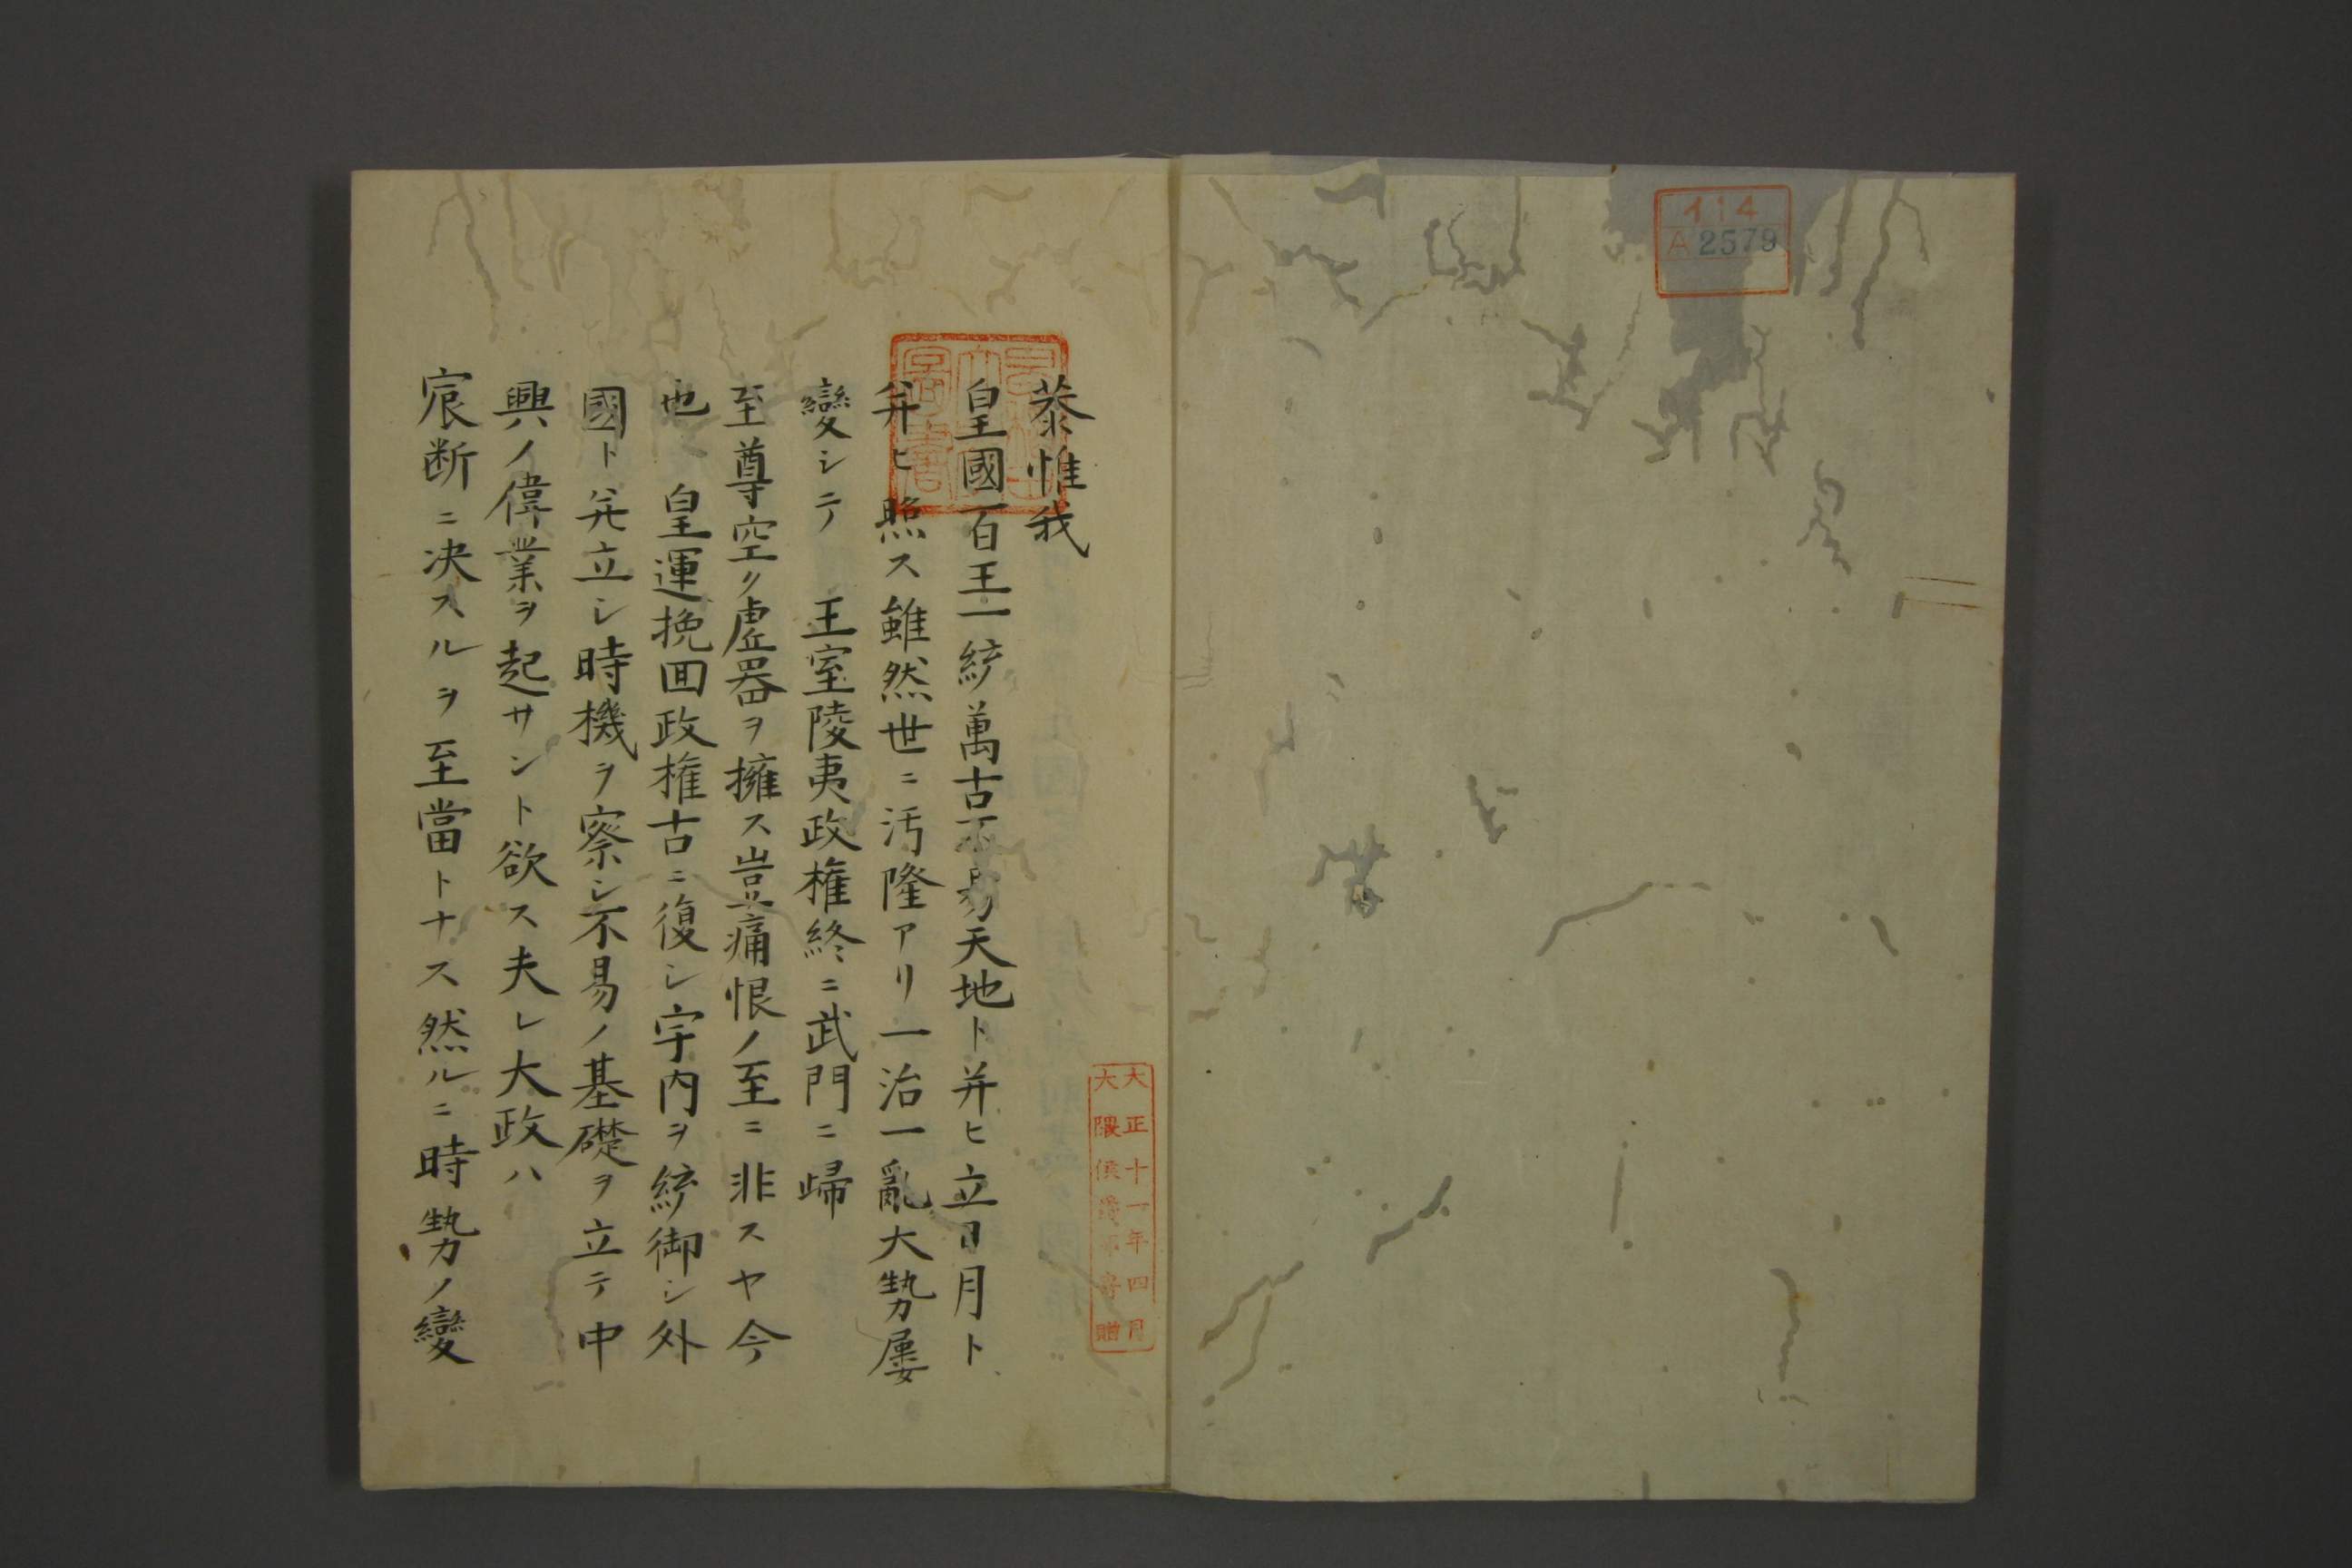 イ14
A2579
恭惟我
皇國百王一統萬古不易天地ト并ヒ立日月ト
并ヒ照ス雖然世ニ汚隆アリ一治一亂大勢屢
變シテ　王室陵夷政権終ニ武門ニ歸
至尊空ク虚器ヲ擁ス豈痛恨ノ至ニ非スヤ今
也　皇運挽回政権古ニ復シ宇内ヲ統御シ外
國ト并立シ時機ヲ察シ不易ノ基礎ヲ立テ中
興ノ偉業ヲ起サント欲ス夫レ大政ハ
宸断ニ决スルヲ至當トナス然ルニ時勢ノ變
大正十一年四月
大隈侯爵家寄贈